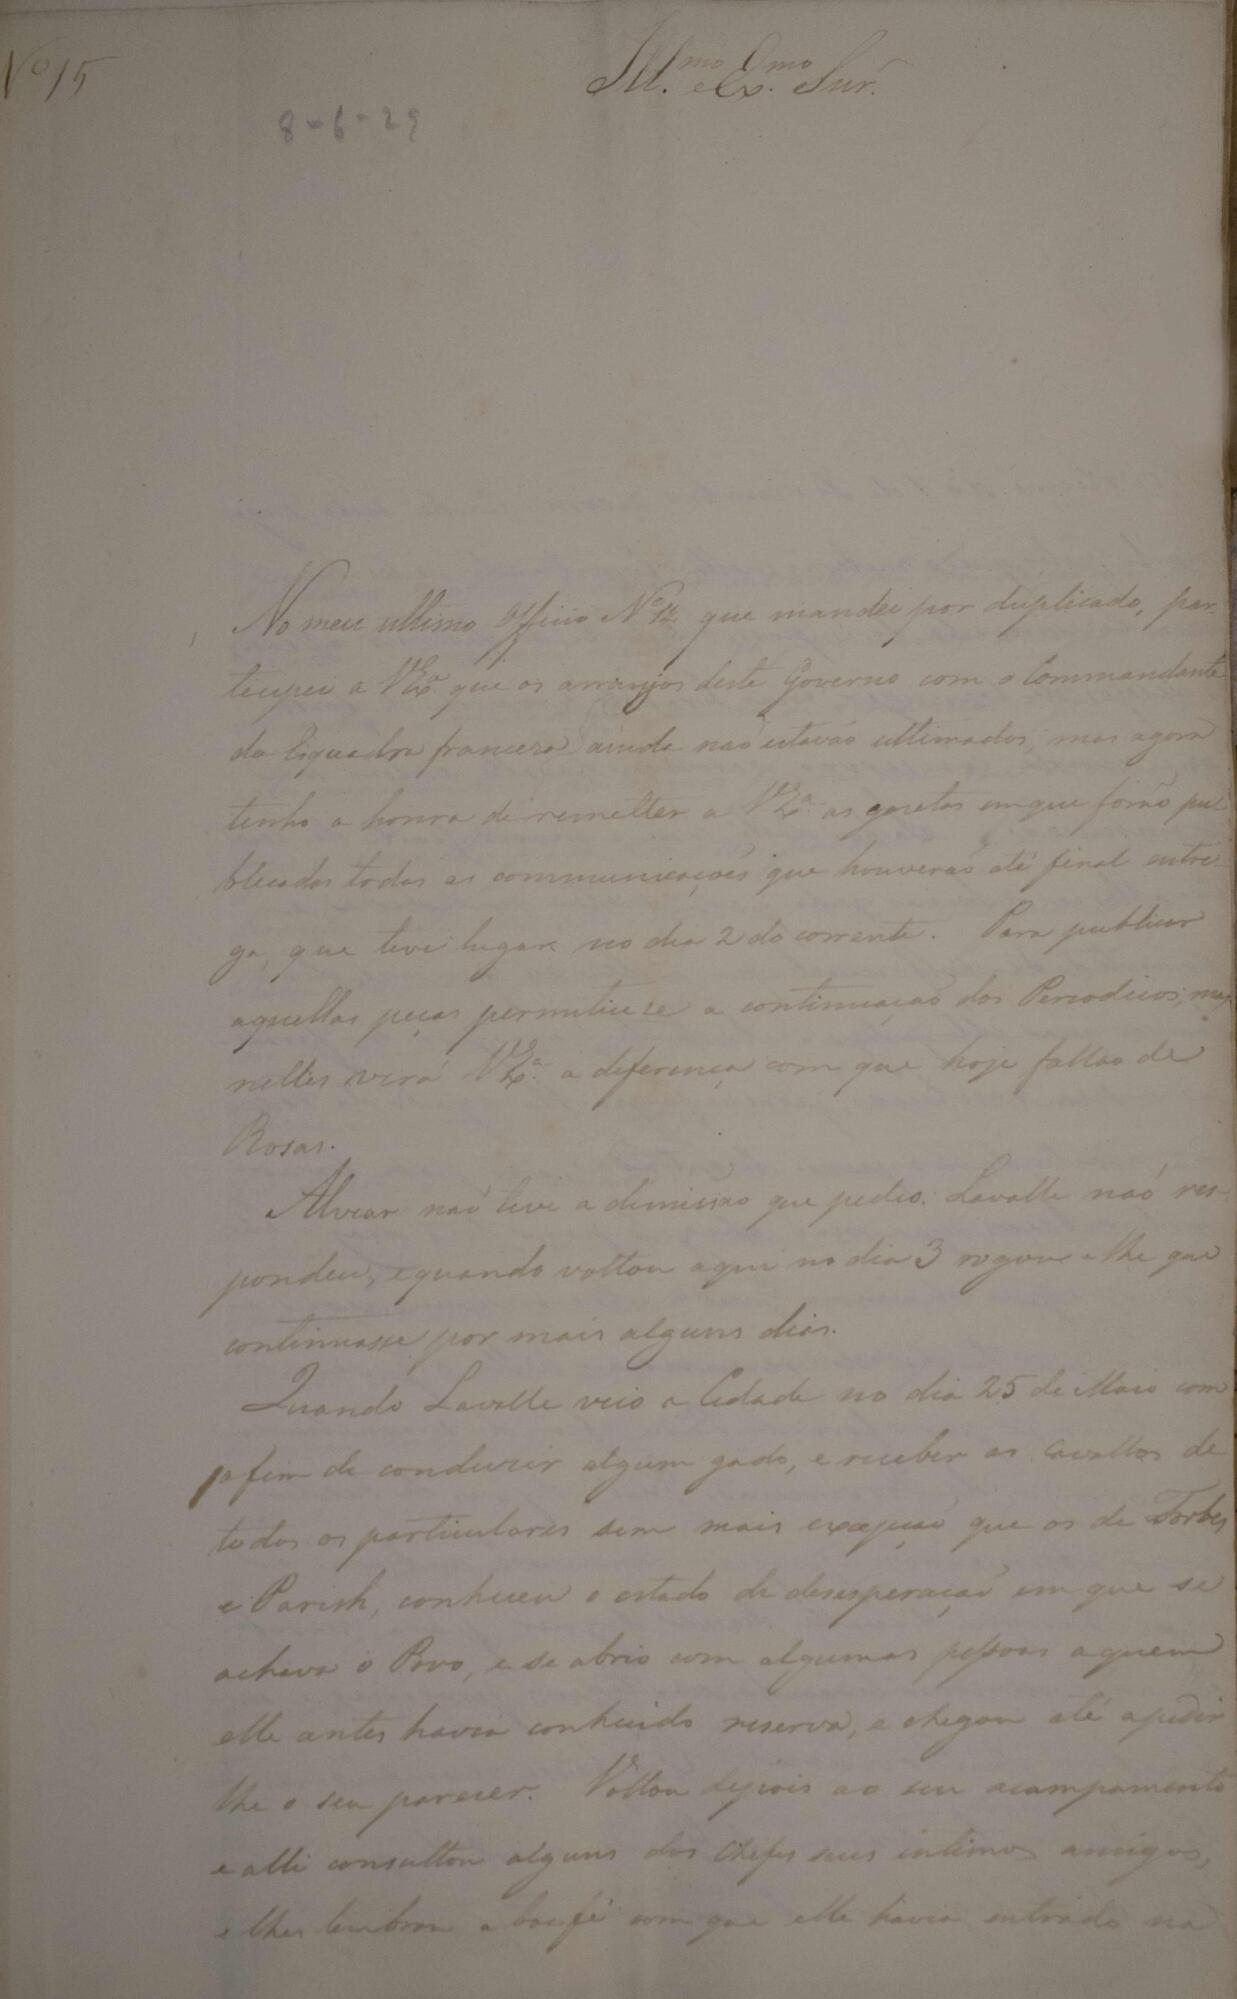 Nº 15
Ill.mo e Ex.mo Snr.
8-6-29
No meu ultimo Officio Nº 12, que mandei por duplicado, par-
ticipei a VEx.ª que os arranjos deste Governo com o Commandante
da Esquadra franceza ainda não estavão ultimados, mas agora
tenho a honra de remetter a VEx.ª as gazetas em que forão pu-
blicadas todas as communicações que houverão até final entre-
ga, que teve lugar no dia 2 do corrente. Para publicar
aquellas peças permitiu se a continuação dos Periodicos, mas
nelles verá VEx.ª a diferença com que hoje fallão de
Rosas.
Alvear não teve a dimissão que pedio. Lavalle não res-
pondeu, e quando voltou aqui no dia 3 rogou-lhe que
continuasse por mais alguns dias.
Quando Lavalle veio a Cidade no dia 25 de Maio com
o fim de conduzir algum gado, e receber os cavallos de
todos os particulares sem mais excepção que os de Forbes
e Parish, conheceu o estado de desesperação em que se
achava o Povo, e se abrio com algumas pessoas a quem
elle antes havia conhecido reserva, e chegou até a pedir
lhe o seu parecer. Voltou depois ao seu acampamento
e alli consultou alguns dos Chefes seus intimos amigos,
e lhes lembrou a boa fé com que elle havia entrado na